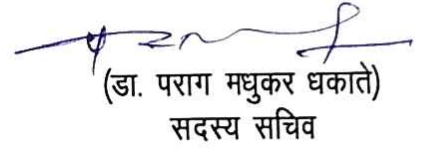 (डा. पराग मधुकर धकाते)
सदस्य सचिव